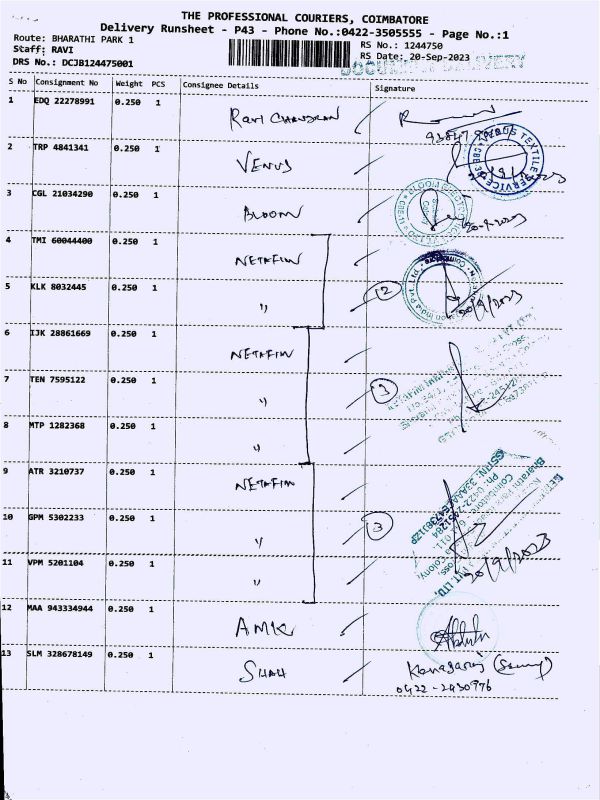 THE PROFESSIONAL COURIERS, COIMBATORE
Delivery Runsheet - P43 - Phone No.:0422-3505555 - Page No.:1
Route: BHARATHI PARK 1
RS No.: 1244750
Staff: RAVI
RS Date: 20-Sep-2023
DRS No.: DCJB124475001
DOCUMENT DELIVERY
S No Consignment No Weight PCS Consignee Details Signature
1 EDQ 22278991 0.250 1 RAVI CHANDRAN
2 TRP 4841341 0.250 1 VENUS
3 CGL 21034290 0.250 1 BLOOM 20-9-2023
4 TMI 60044400 0.250 1 NETAFIM
5 KLK 8032445 0.250 1 〃 2 20/9/2023
6 IJK 28861669 0.250 1 NETAFIM
7 TEN 7595122 0.250 1 〃 3
8 MTP 1282368 0.250 1 〃
9 ATR 3210737 0.250 1 NETAFIM
10 GPM 5302233 0.250 1 〃 3
11 VPM 5201104 0.250 1 〃 20/9/2023
12 MAA 943334944 0.250 1 AMK
13 SLM 328678149 0.250 1 SHAH Kanagaraj
0422-2430976